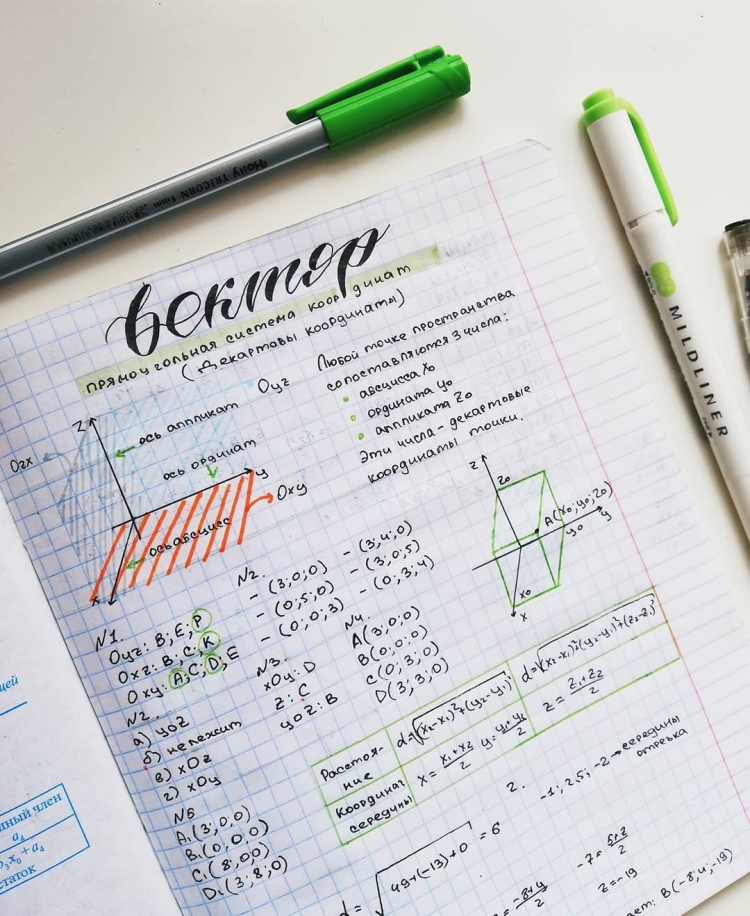 Holly TRICORN 1mm
MILDLINER
вектор
прямоугольная система координат
(Декартовы координаты)
Любой точке пространства
сопоставляются 3 числа:
абсцисса x₀
ордината y₀
аппликата z₀
Эти числа - декартовые
координаты точки.
Oyz
z
ось аппликат
Ozx
ось ординат
y
Oxy
ось абсцисс
x
z
z₀
A(x₀;y₀;z₀)
y₀
y
x₀
x
N1
Oyz: B; E; P
Oxz: B; C; K
Oxy: A; C; D; E
N2.
а) yOz
б) не лежит
в) xOz
г) xOy
N2.
- (3;0;0)
- (0;5;0)
- (0;0;3)
- (3;4;0)
- (3;0;5)
- (0;3;4)
N3.
xOy: D
z: C
yOz: B
N4.
A(3;0;0)
B(0;0;0)
C(0;3;0)
D(3;3;0)
N5
A₁(3;0;0)
B₁(0;0;0)
C₁(8;0;0)
D₁(3;8;0)
Расстоя-
ние
d=√(x₂-x₁)²+(y₂-y₁)²
d=√(x₂-x₁)²+(y₂-y₁)²+(z₂-z₁)²
Координат.
середины
x = x₁+x₂/2 y = y₁+y₂/2
z = z₁+z₂/2
2.
-1; 2,5; -2 → середины
отрезка
d = √49+(-13)+0 = 6
z=-19
B(-8;4;-19)
член
a₄